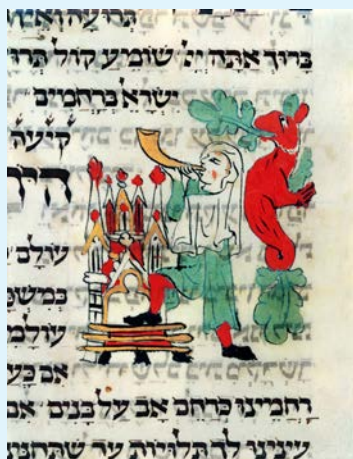 ברוך אתה יי שומיע קול תרו
ישרא ברחמים
היו
עולם
במשפ
עולמ
אם כע
רחמינו כרחם אב על בנים אם
עינינו לך תלויות עד שתחננו